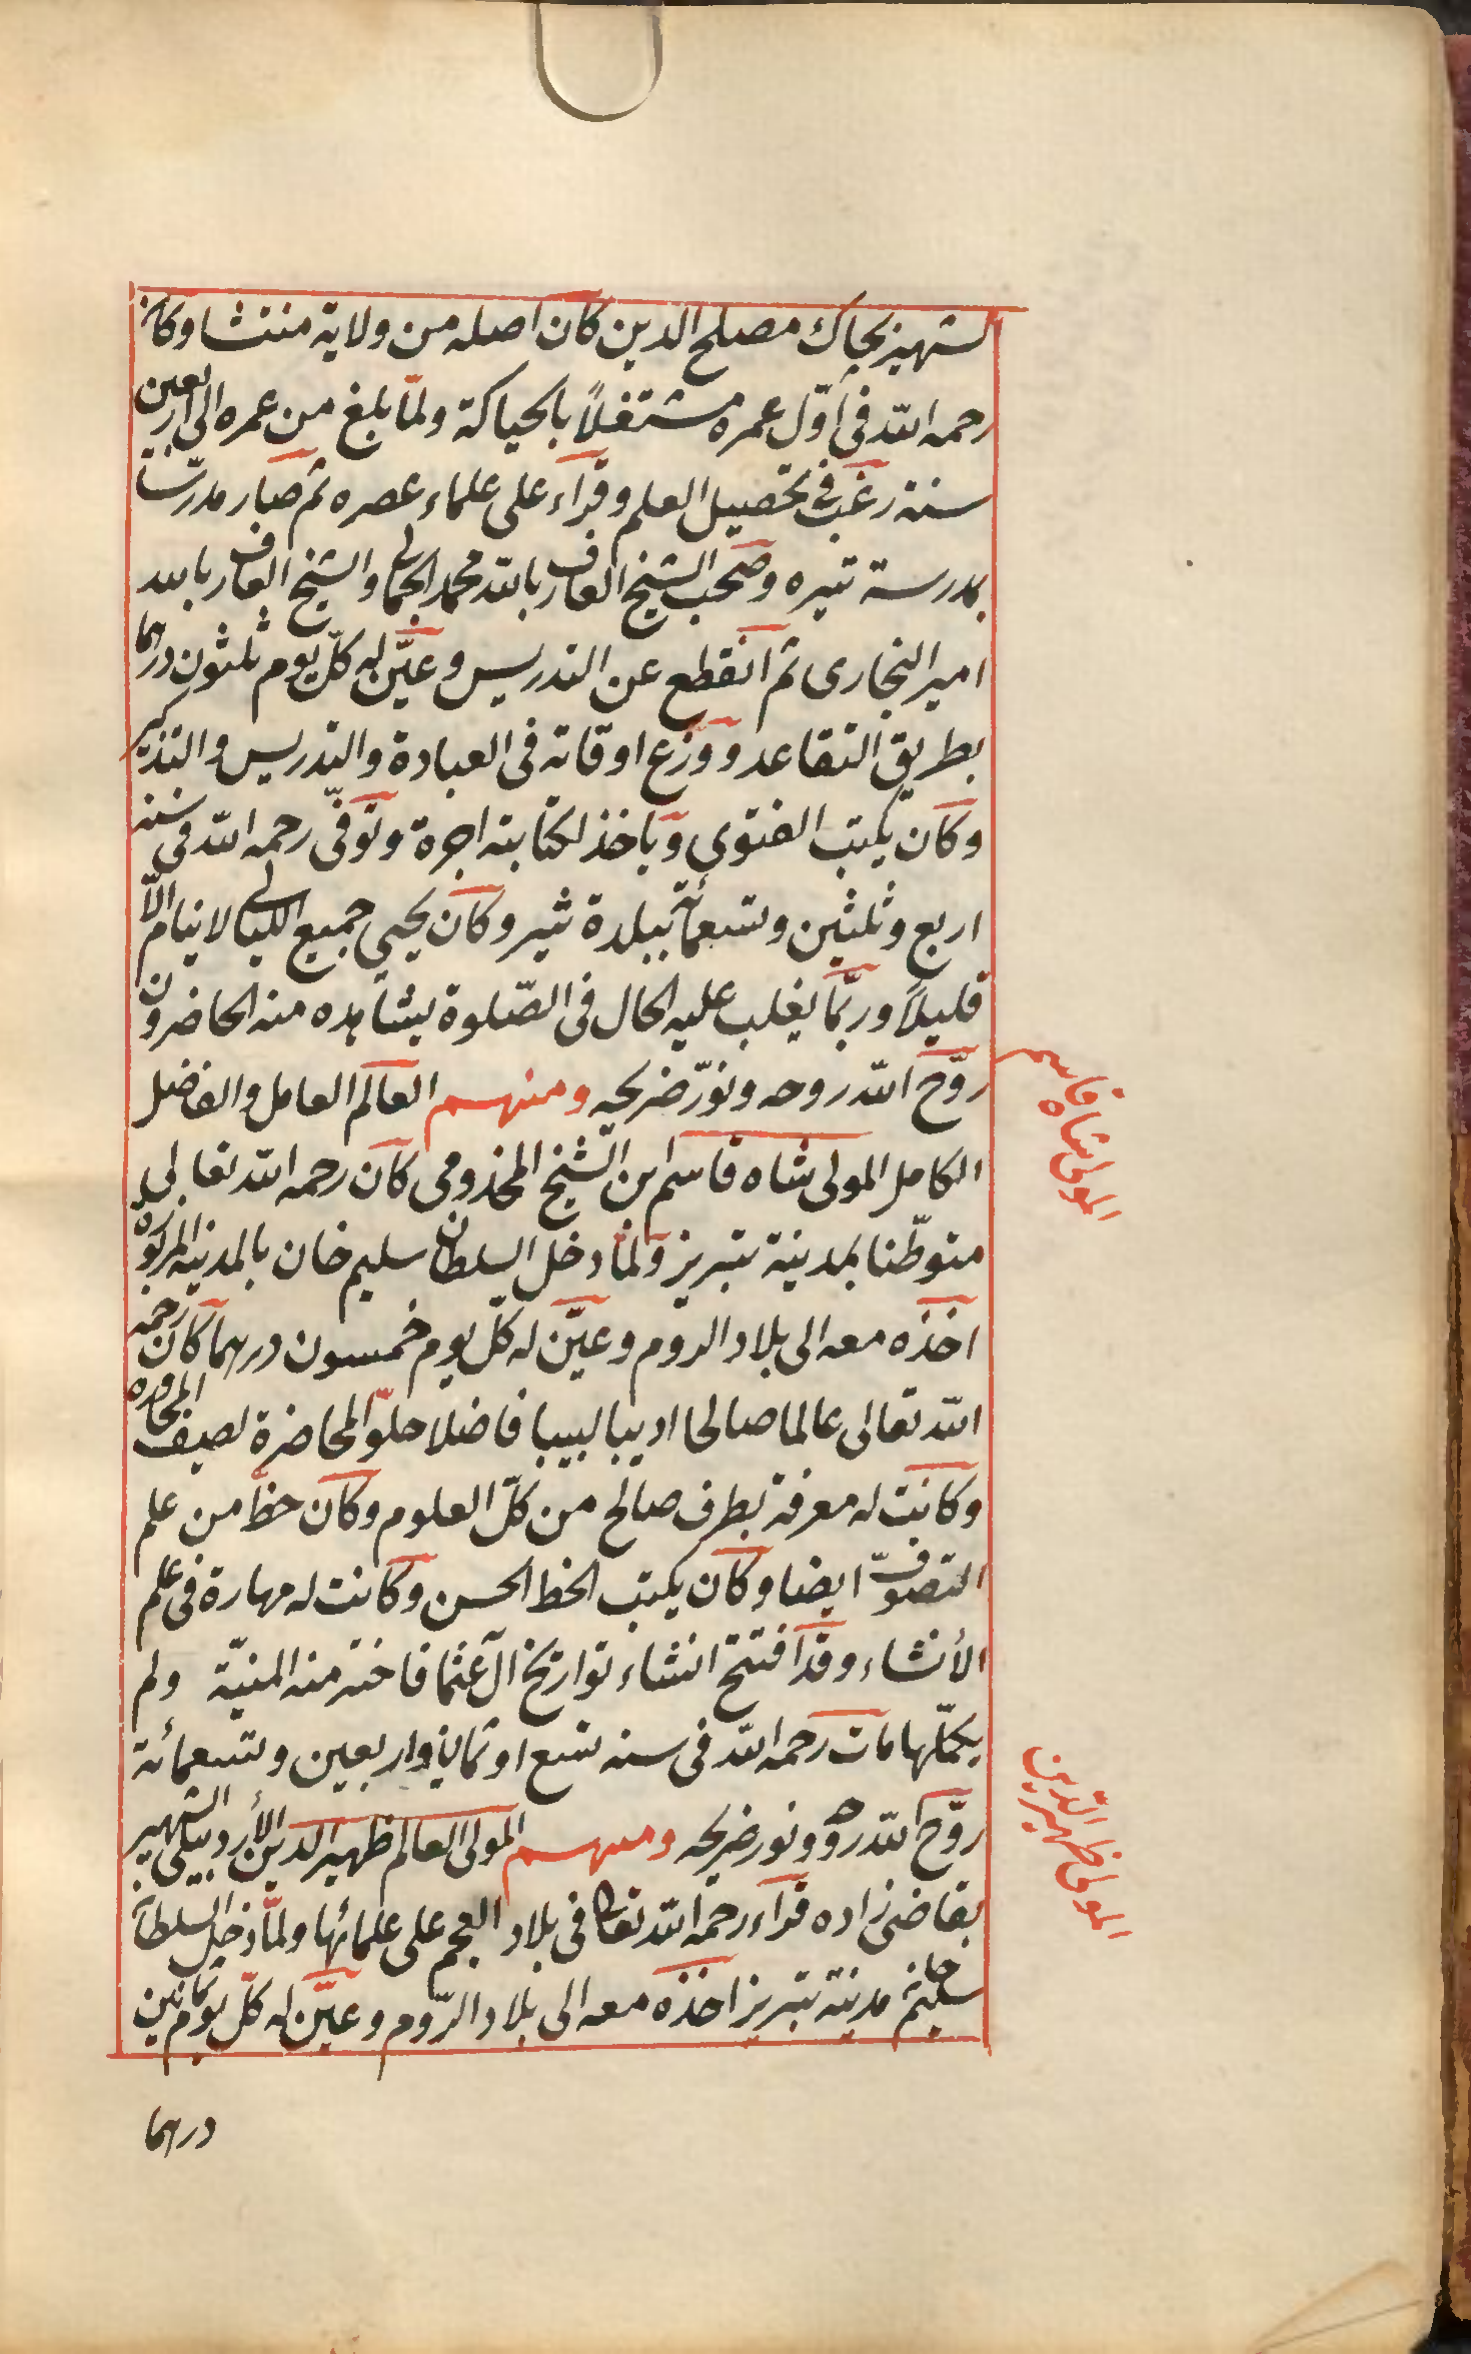 الشهير بجاك مصلح الدين كان اصله من ولاية منتشا وكان
رحمه الله فى اوّل عمره مشتغلاً بالحياكة ولمّا بلغ من عمره الى اربعين
سنة رغب فى تحصيل العلم وقراء على علماء عصره ثم صار مدرّسا
بمدرسة تيره وصحب الشيخ العارف بالله محمد الجمالى والشيخ العارف بالله
امير البخارى ثم انقطع عن التدريس وعيّن له كلّ يوم ثلثون درهما
بطريق التقاعد ووزع اوقاته فى العبادة والتدريس والتذكير
وكان يكتب الفتوى وياخذ لكتابته اجرة وتوفّى رحمه الله فى سنة
اربع وثلثين وتسعمائة ببلدة تيره وكان يحيى جميع الليالى لا ينام الّا
قليلاً وربّما يغلب عليه الحال فى الصّلوة يشاهده منه الحاضرون
روّح الله روحه ونوّر ضريحه ومنهم العالم العامل والفاضل
الكامل المولى شاه قاسم بن الشيخ المخذومى كان رحمه الله تعالى
متوطّنا بمدينة تبريز ولمّا دخل السلطان سليم خان بالمدينة المزبورة
اخذه معه الى بلاد الروم وعيّن له كلّ يوم خمسون درهما كان رحمه
الله تعالى عالما صالحا اديبا لبيبا فاضلا حلوّ المحاضرة لصيف المحاوره
وكانت له معرفة بطرف صالح من كلّ العلوم وكان حظّ من علم
التصوّف ايضا وكان يكتب الخط الحسن وكانت له مهارة فى علم
الأنشاء وقد افتتح انشاء تواريخ آل عثمان فاخترمته المنيّة ولم
يكمّلها مات رحمه الله فى سنه تسع او ثمان واربعين وتسعمائة
روّح الله روحه ونور ضريحه ومنهم المولى العالم ظهير الدين الأردبيلى الشهير
بقاضى زاده قراء رحمه الله تعالى فى بلاد العجم على علمائها ولمّا دخل السلطان
سليم خان مدينة تبريز اخذه معه الى بلاد الرّوم وعيّن له كلّ يوم ثمانين
درهما
المولى شاه قاسم
المولى ظهير الدّين